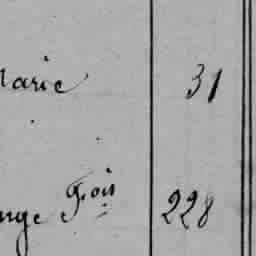 Marie 31
nge Fois 228